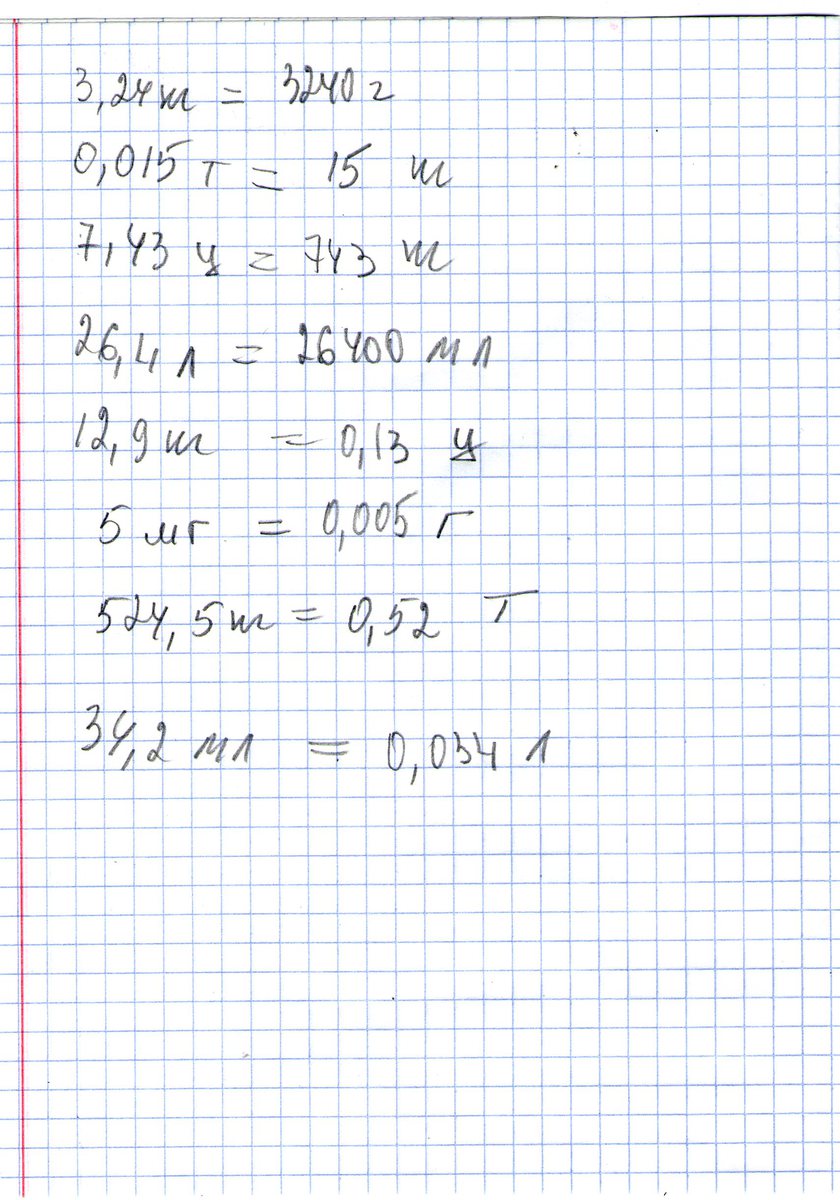 3,24 кг = 3240 г
0,015 т = 15 кг
7,43 ц = 743 кг
26,4 л = 26400 мл
12,9 кг = 0,13 ц
5 мг = 0,005 г
524,5 кг = 0,52 т
34,2 мл = 0,034 л